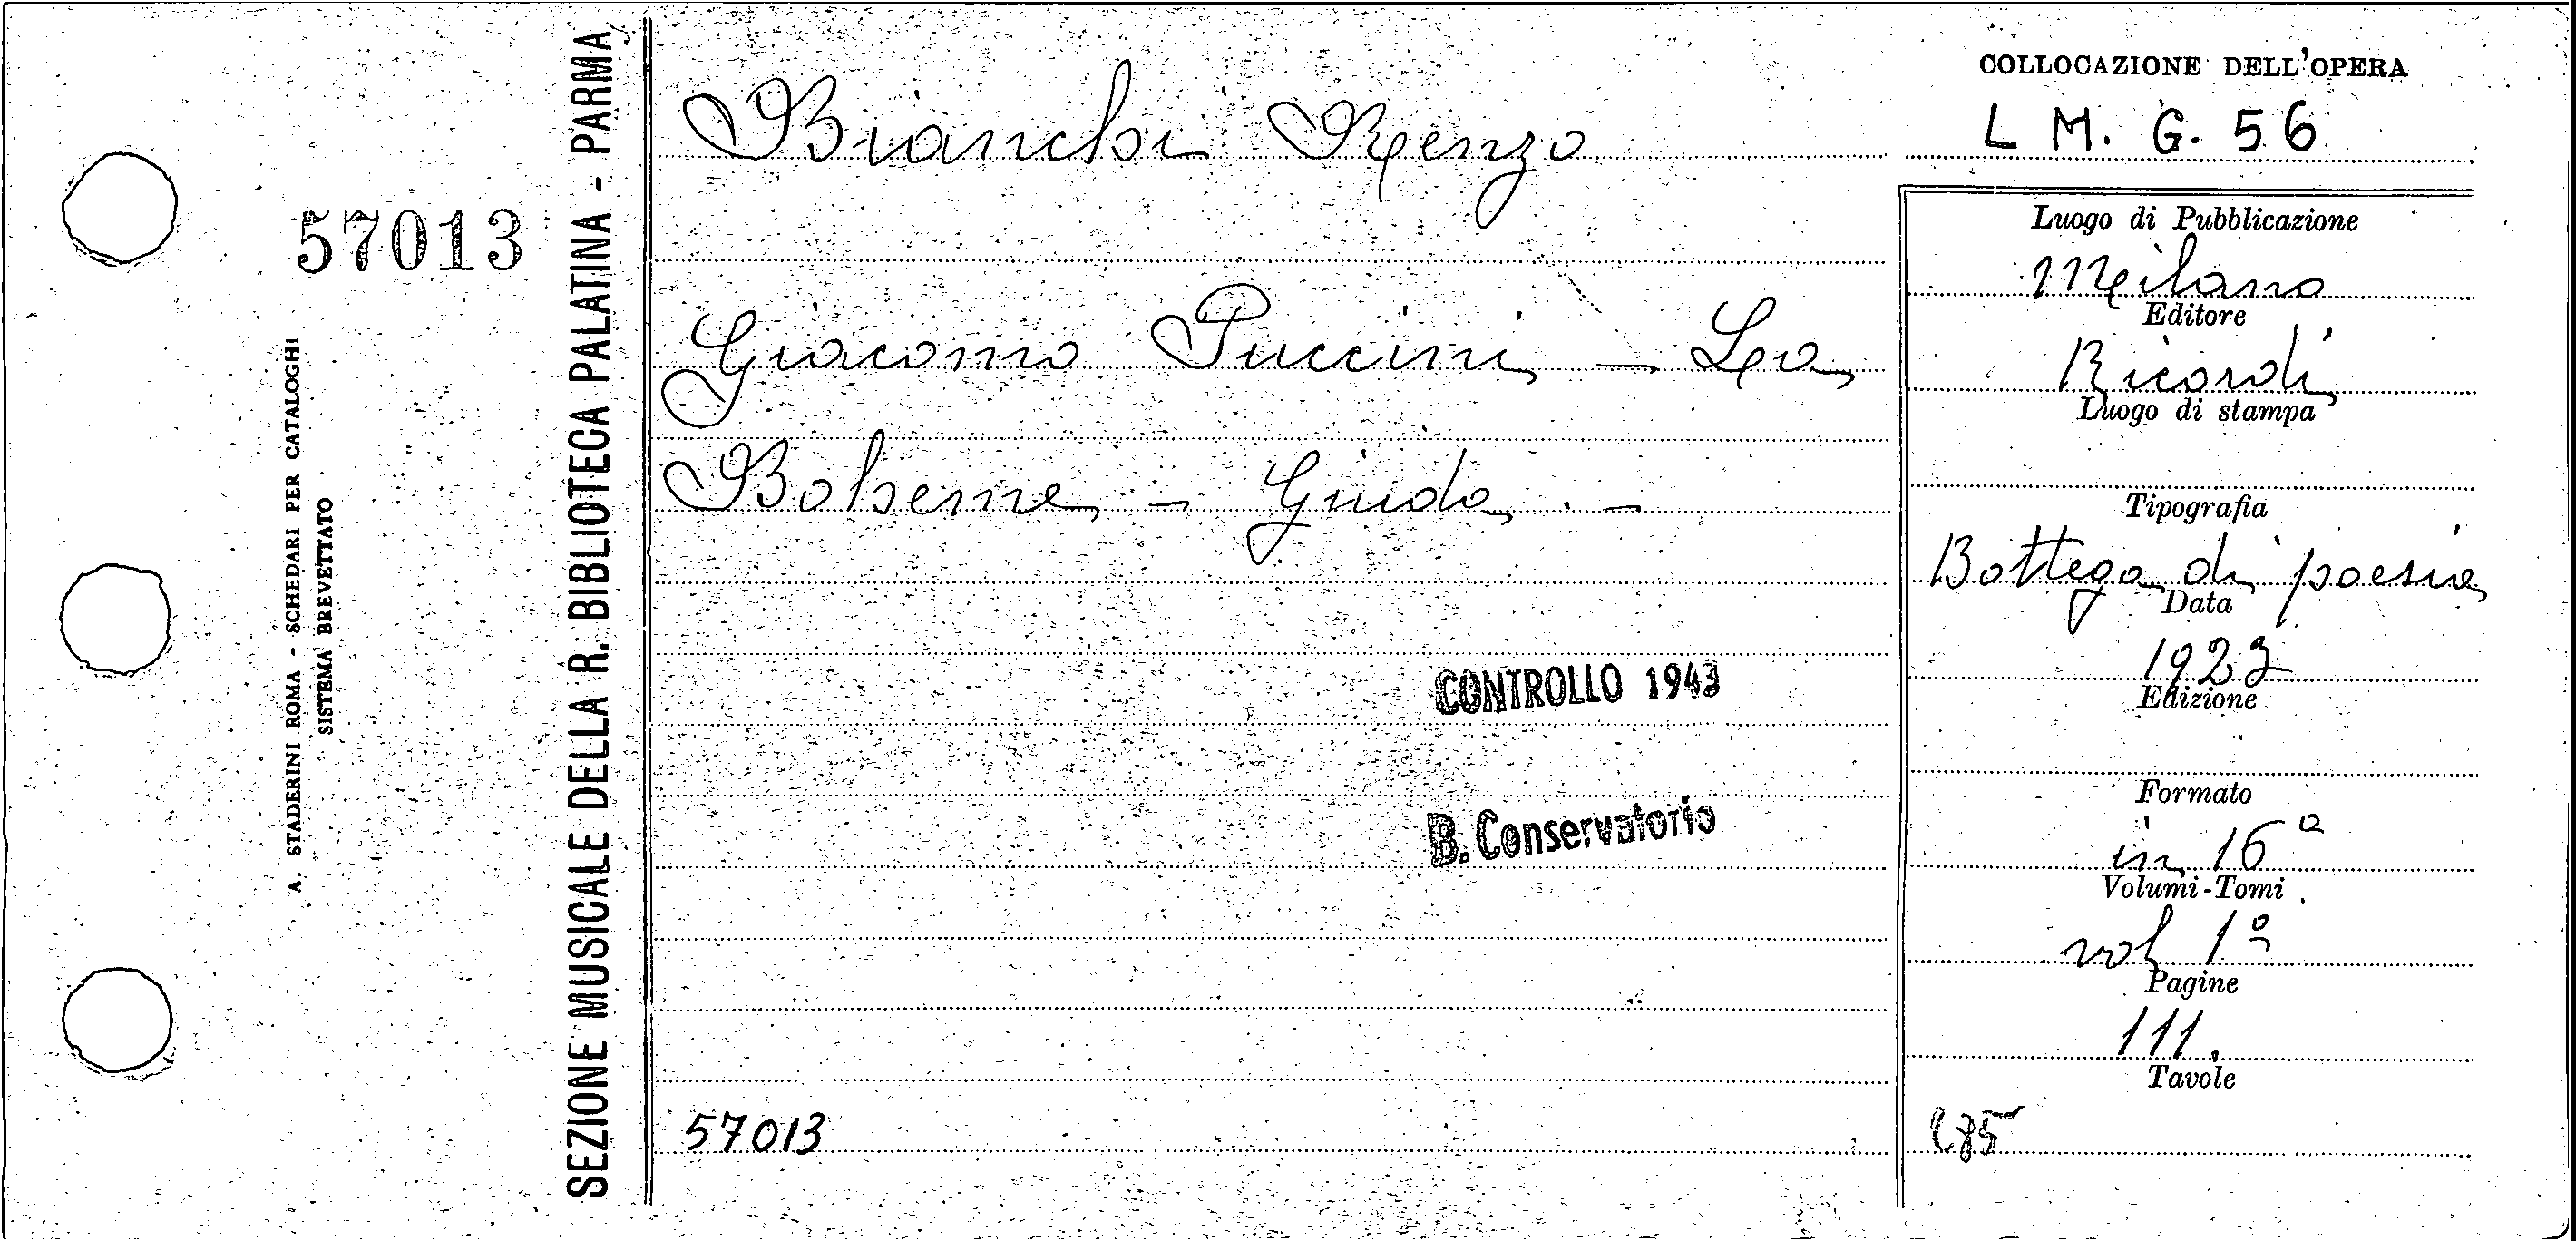 57013
A. STADERINI ROMA - SCHEDARI PER CATALOGHI
SISTEMA BREVETTATO
SEZIONE MUSICALE DELLA R. BIBLIOTECA PALATINA - PARMA
Bianchi Renzo
Giacomo Puccini - La
Boheme - Guida. -
CONTROLLO 1943
B. Conservatorio
57013
COLLOCAZIONE DELL'OPERA
L M. G. 56
Luogo di Pubblicazione
Milano
Editore
Ricordi
Luogo di stampa
Tipografia
Bottega di poesia
Data
1923
Edizione
Formato
in 16º
Volumi-Tomi
vol 1º
Pagine
111.
Tavole